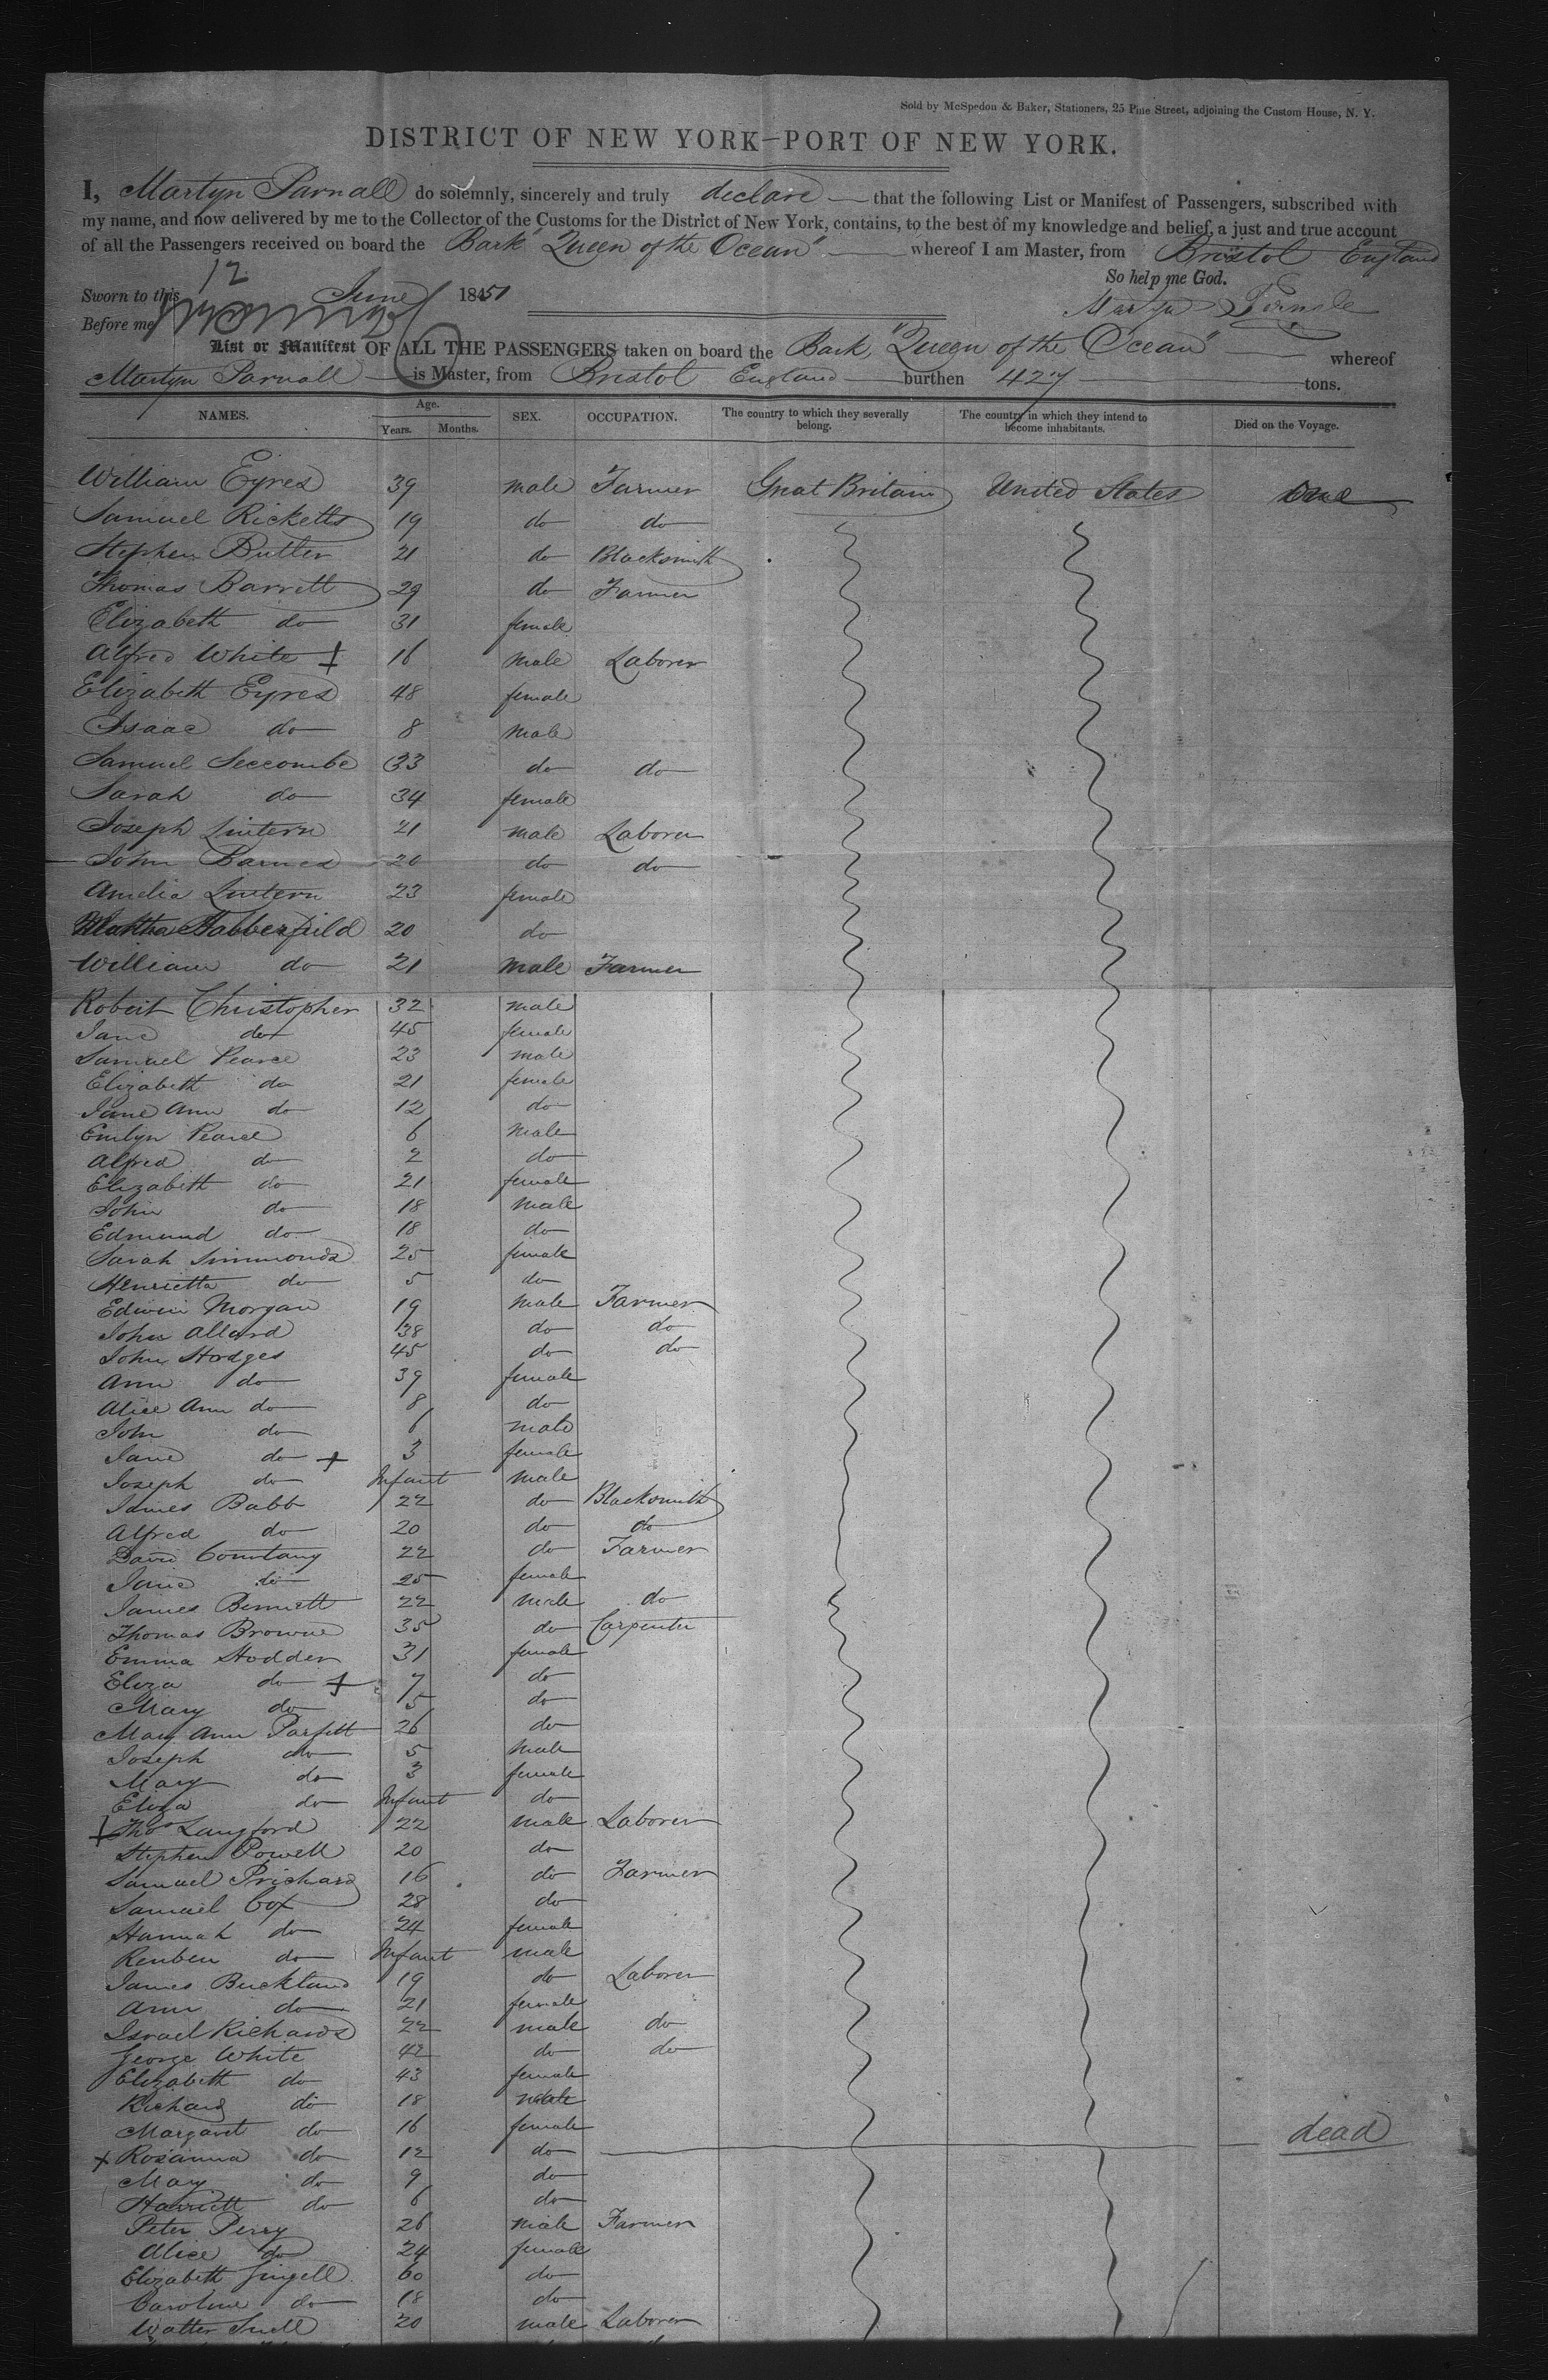 Sold by McSpedon & Baker, Stationers, 25 Pine Street, adjoining the Custom House, N. Y.
DISTRICT OF NEW YORK—PORT OF NEW YORK.
I, Martyn Parnall do solemnly, sincerely and truly declare that the following List or Manifest of Passengers, subscribed with
my name, and now delivered by me to the Collector of the Customs for the District of New York, contains, to the best of my knowledge and belief, a just and true account
of all the Passengers received on board the Bark "Queen of the Ocean" whereof I am Master, from Bristol England
So help me God.
Sworn to this 12 June 1851
Martyn
Before me
List or Manifest OF ALL THE PASSENGERS taken on board the Bark, "Queen of the Ocean" whereof
Martyn Parnall is Master, from Bristol England burthen 427 tons.
NAMES. Age. Years. Months. SEX. OCCUPATION. The country to which they severally belong. The country in which they intend to become inhabitants. Died on the Voyage.
William Eyres 39 male Farmer Great Britain United States one
Samuel Ricketts 19 do do
Stephen Butler 21 do Blacksmith
Thomas Barrett 29 do Farmer
Elizabeth do 31 female
Alfred White + 16 male Laborer
Elizabeth Eyres 48 female
Isaac do 8 male
Samuel Seccombe 33 do do
Sarah do 34 female
Joseph Lintern 21 male Laborer
John Barnes 20 do do
Amelia Lintern 23 female
Martha Habberfield 20 do
William do 21 male Farmer
Robert Christopher 32 male
Jane do 45 female
Samuel Pearce 23 male
Elizabeth do 21 female
Jane Ann do 12 do
Emlyn Pearce 6 male
Alfred do 2 do
Elizabeth do 21 female
John do 18 male
Edmund do 18 do
Sarah Simmonds 25 female
Henrietta do 5 do
Edwin Morgan 19 male Farmer
John Allard 38 do do
John Hodges 45 do do
Ann do 39 female
Alice Ann do 8 do
John do 6 male
Jane do + 3 female
Joseph do Infant male
James Babb 22 do Blacksmith
Alfred do 20 do do
David 22 do Farmer
Jane do 25 female
James Bennett 22 male do
Thomas Browne 35 do Carpenter
Emma Hodder 31 female
Eliza do + 7 do
Mary do 5 do
Mary Ann Parfitt 26 do
Joseph do 5 male
Mary do 3 female
Eliza do Infant do
+ Thos Langford 22 male Laborer
Stephen Powell 20 do
Samuel Prichard 16 do Farmer
Samuel Cox 28 do
Hannah do 24 female
Reuben do Infant male
James Buckland 19 do Laborer
Ann do 21 female
Israel Richards 22 male do
George White 42 do do
Elizabeth do 43 female
Richard do 18 male
Margaret do 16 female
+ Rosanna do 12 do dead
Mary do 9 do
Harriett do 6 do
Peter Perry 26 male Farmer
Alice do 24 female
Elizabeth Gingell 60 do
Caroline do 18 do
Walter Snell 20 male Laborer